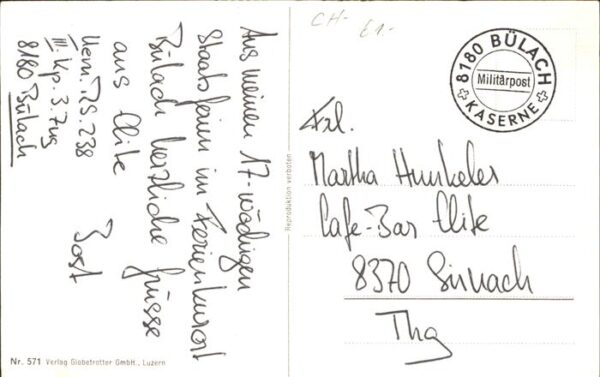 Aus meinen 17-wöchigen
Staatsferien im Ferienkurort
Bülach herzliche Grüsse
aus Elite
Uem. RS. 238
III. Kp. 3. Zug
8180 Bülach
CH-
€1.-
8180 BÜLACH
Militärpost
KASERNE
Frl.
Martha Hunkeler
Cafe-Bar Elite
8370 Sirnach
Thg
Reproduktion verboten
Nr. 571 Verlag Globetrotter GmbH., Luzern